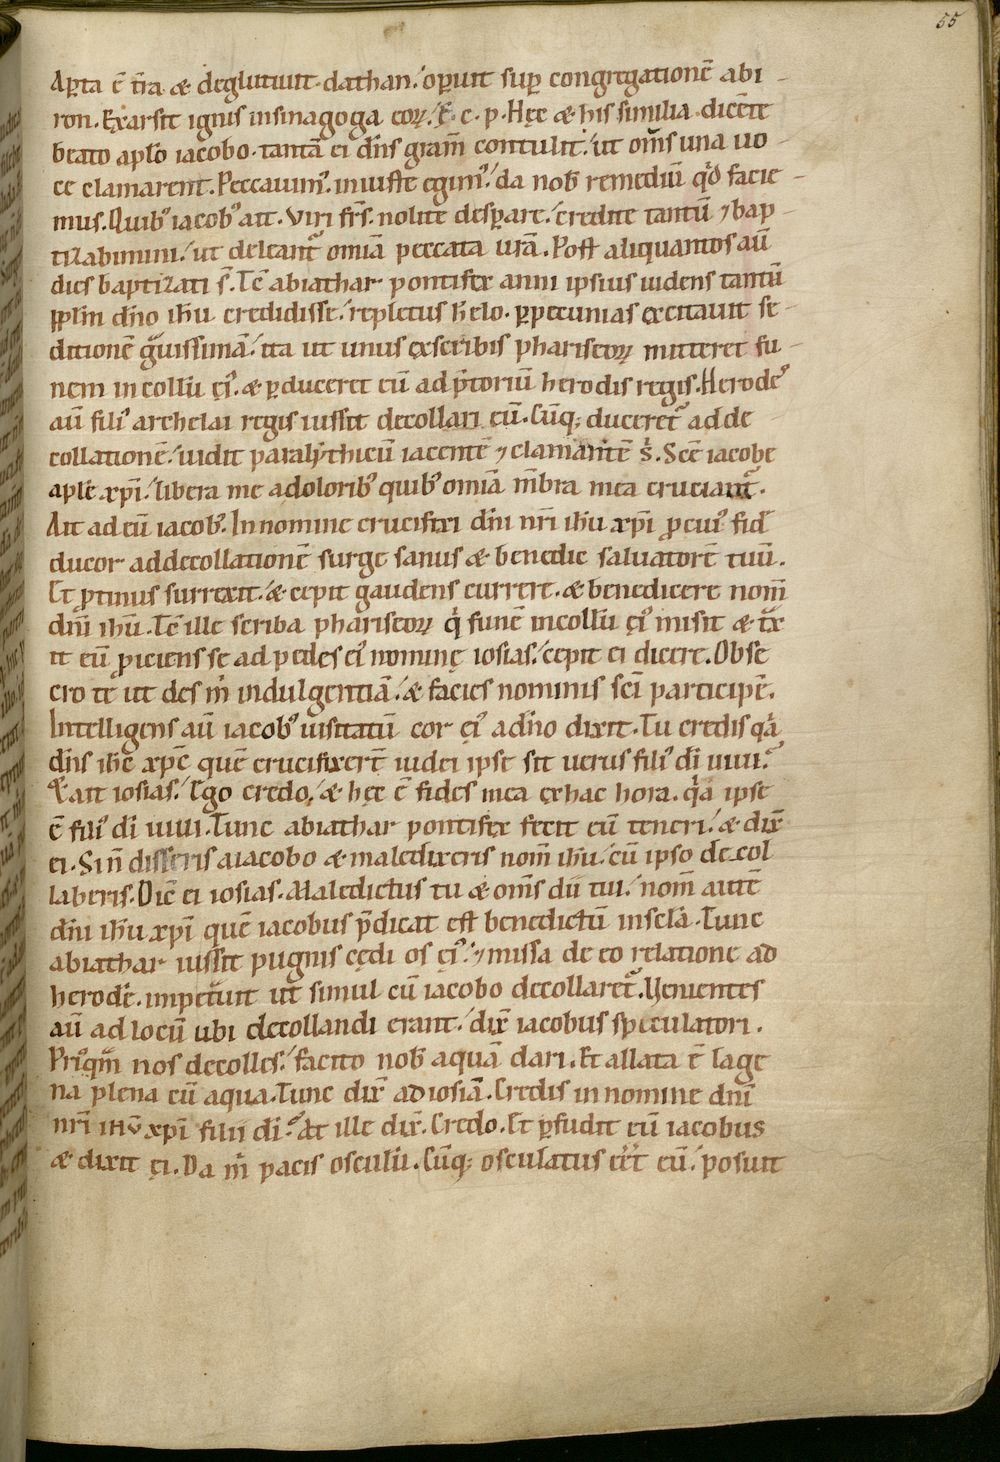 55
Aꝑta ē t̄ra & deglutiuit dathan. oꝑuit suꝑ congregationē abi-
ron. Exarsit ignis insinagoga eoꝝ. & c. p. Hęc & his similia dicente
beato apl̄o iacobo. tantā ei dn̄s grām contulit. ut om̄s una uo-
ce clamarent. Peccauimꝰ. iniuste egimꝰ. da nob̄ remediū qd̄ facie-
mus. Quibꝰ iacobꝰ ait. Viri fr̄s. nolite desꝑare. credite tantū ⁊ bap-
tizabimini. ut deleant᷑ omīa peccata ur̄a. Post aliquantos aū
dies baptizati s̄. Tc̄ abiathar pontifex anni ipsius uidens tantū
ppl̄m dn̄o ih̄u credidisse. repletus h̄ elo. ꝑpecunias excitauit se-
ditionē gͣuissimā. ita ut unus exscribis phariseoꝝ mitteret fu-
nem incollū eiꝰ. & ꝑduceret eū ad p̄toriū herodis regis. Herodeꝰ
aū filiꝰ archelai regis iussit decollari eū. Cūq; duceret᷑ ad de
collationē. uidit paralythicū iacentē ⁊ clamantē s̄. Sc̄e iacobe
apl̄e xp̄i. libera me adoloribꝰ quibꝰ omīa m̄bra mea cruciant᷑.
Ait ad eū iacobꝰ. In nomine crucifixi dn̄i nr̄i ih̄u xp̄i ꝓ cuiꝰ fid̄
ducor addecollationē surge sanus & benedic saluatorē tuū.
Et ꝓtinus surrexit. & cepit gaudens currere. & benedicere nom̄
dn̄i ih̄u. Tc̄ ille scriba phariseoꝝ qͥ funē incollū eiꝰ misit & tͣx
it eū ꝓiciens se ad pedes eiꝰ nominę iosias. cepit ei dicere. Obse
cro te ut des m̄ indulgentiā. & facies nominis sc̄i participē.
Intelligens aū iacobꝰ uisitatū cor eiꝰ adn̄o dixit. Tu credis qͣa
dn̄s ih̄c xp̄c quē crucifixer̄t iudei ipse sit uerus filiꝰ dī uiui.
& ait iosias. Ego credo. & hęc ē fides mea exhac hora. qͣa ipse
ē filiꝰ dī uiui. Tunc abiathar pontifex fecit eū teneri. & dix̄
ei. Si n̄ disseris aiacobo & maledixeris nom̄ ih̄u. cū ipso decol
laberis. Dic̄ ei iosias. Maledictus tu & om̄s dii tui. nom̄ autē
dn̄i ih̄u xp̄i quē iacobus p̄dicat est benedictū insclā. Tunc
abiathar iussit pugnis cędi os eiꝰ. ⁊ missa de eo relatione ad
herodē. impetͣuit ut simul cū iacobo decollaret᷑. Uenientes
aū ad locū ubi decollandi erant. dix̄ iacobus speculatori.
Priꝰqͣm nos decolles. facito nob̄ aquā dari. Et allata ē lage
na plena cū aqua. Tunc dix̄ ad iosiā. Credis in nomine dn̄i
nr̄i ih̄u xp̄i filii dī. At ille dix̄. Credo. Et ꝑfudit eū iacobus
& dixit ei. Da m̄ pacis osculū. Cūq; osculatus eēt eū. posuit